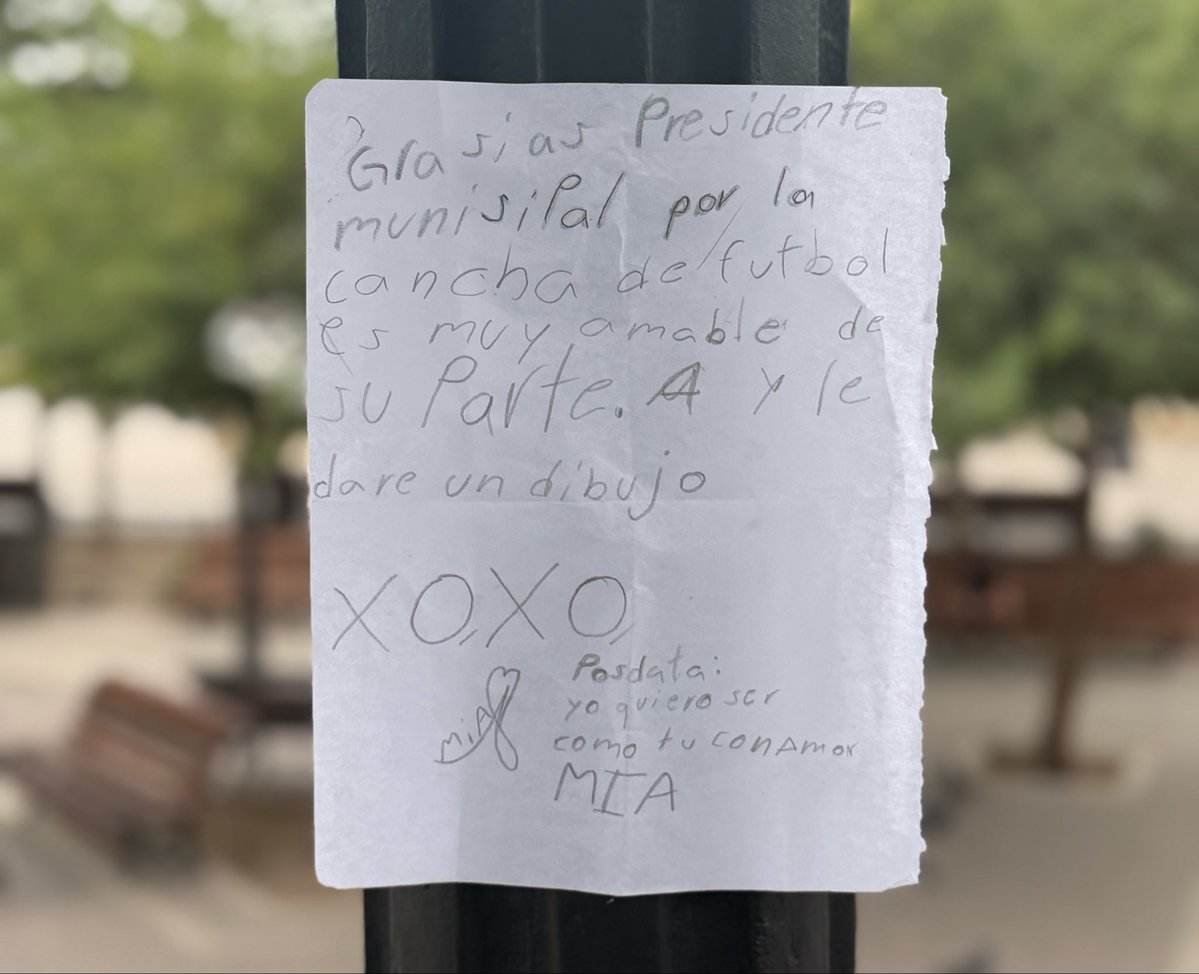 Grasias Presidente
munisipal por la
cancha de futbol
es muy amable de
su Parte. A y le
dare un dibujo
XO,XO,
Posdata:
yo quiero ser
como tu con Amor
MIA
MIA